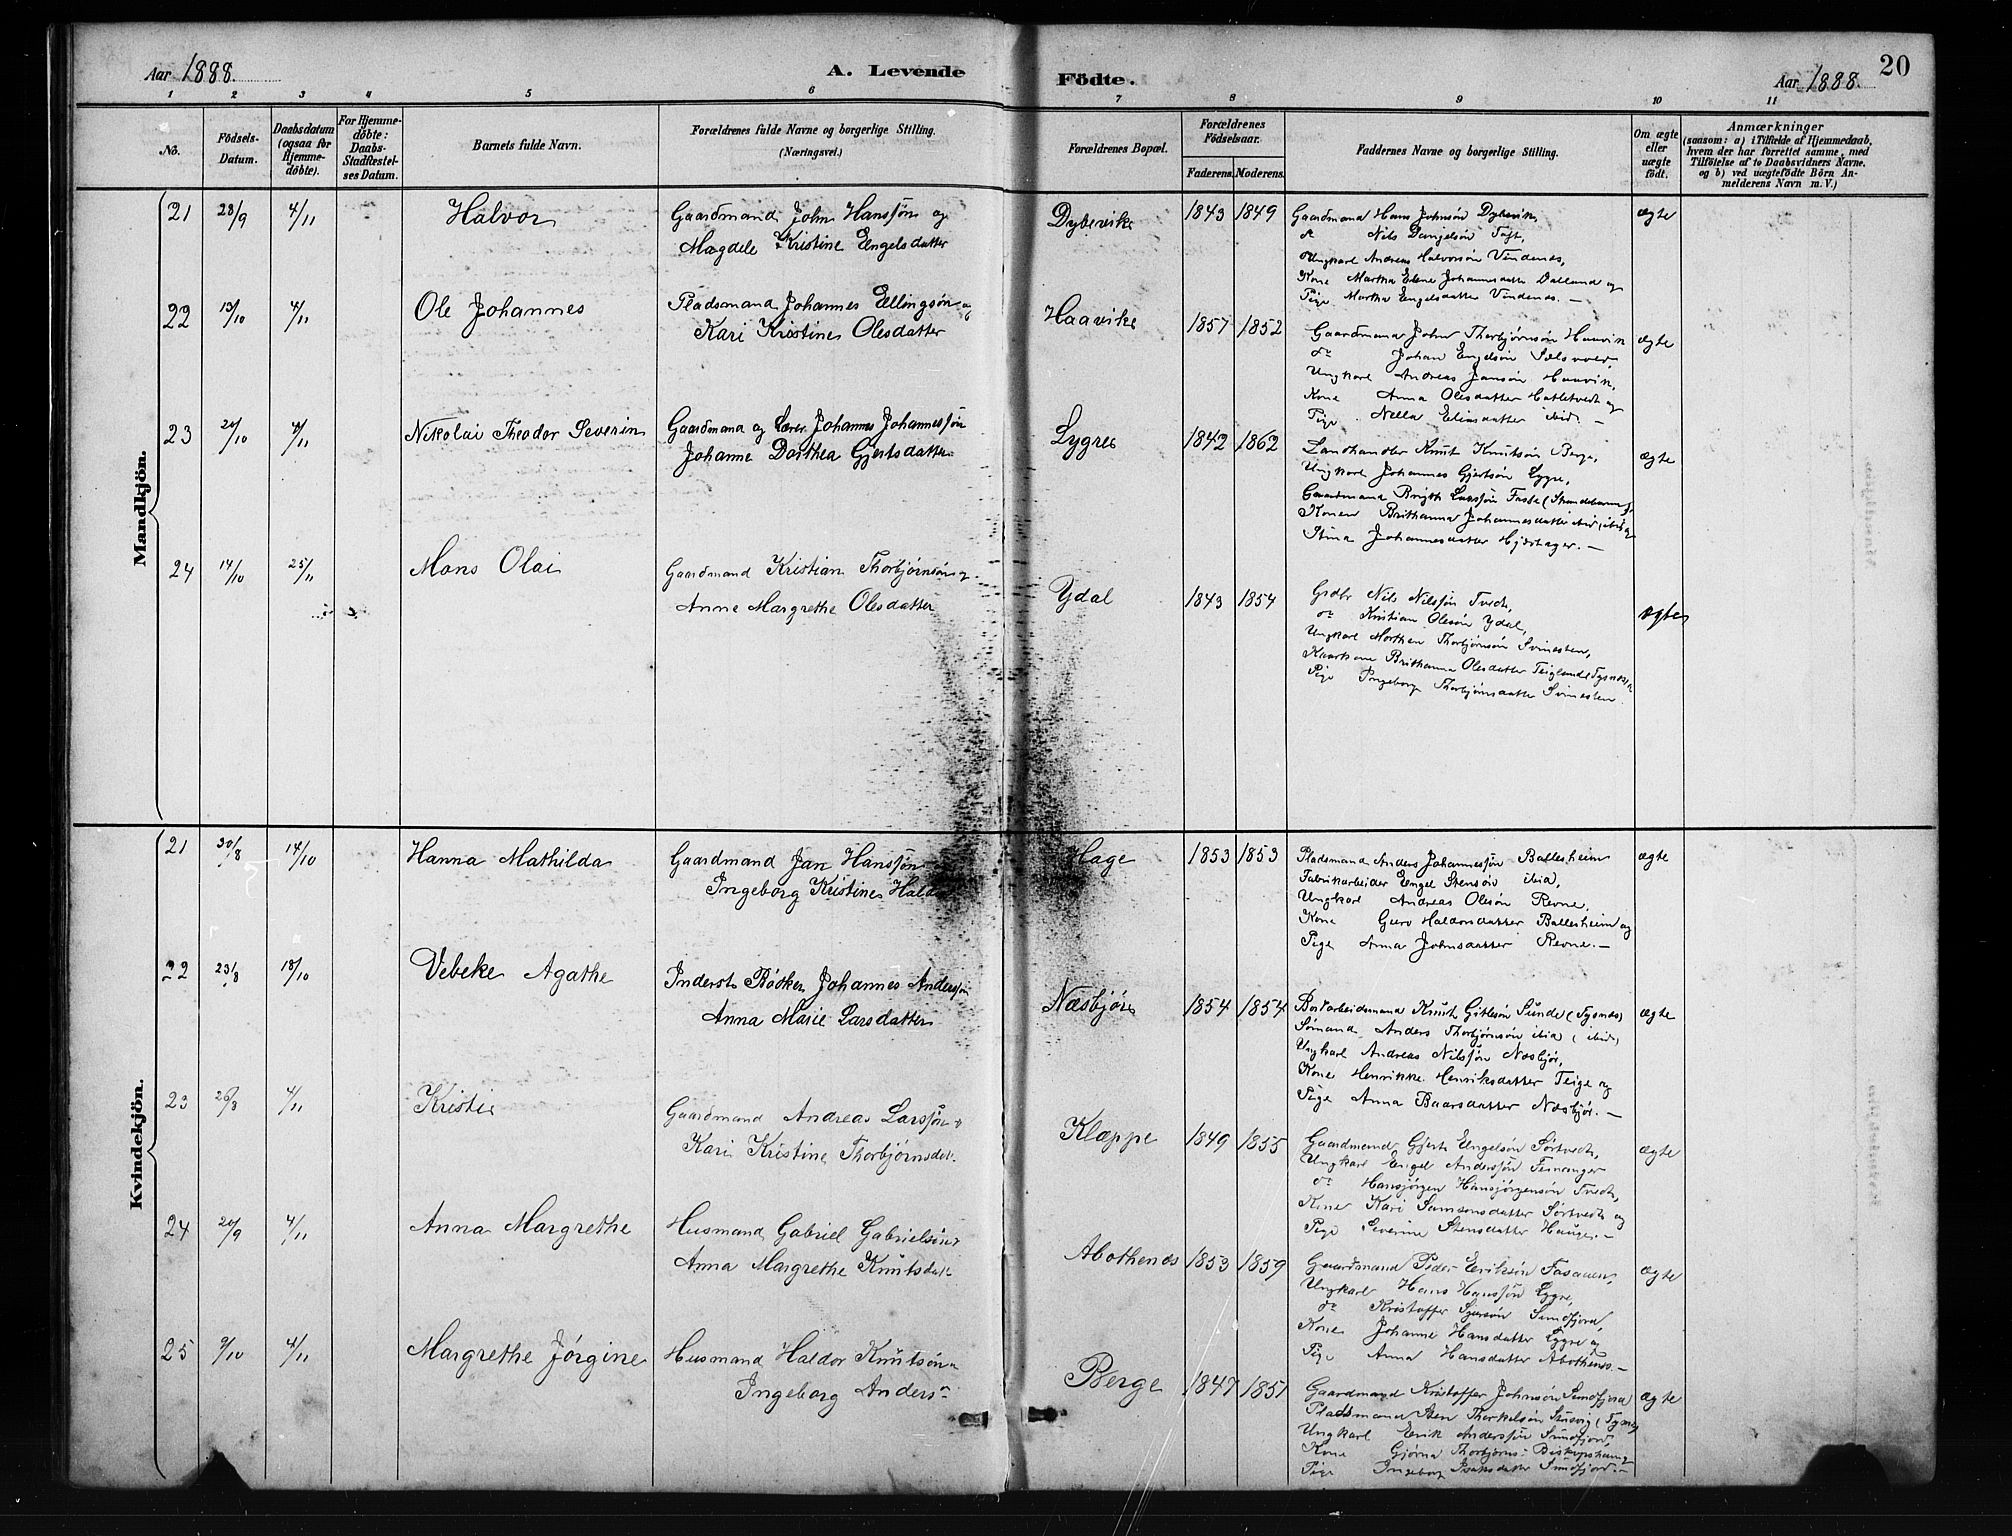 Aar 1888.
A. Levende
Födte.
Aar 1888.
20
1 2 3 4 5 6 7 8 9 10 11
No.
Födsels-Datum.
Daabsdatum (ogsaa for Hjemmedöbte).
For Hjemmedöbte: Daabs-Stadfæstelses Datum.
Barnets fulde Navn.
Forældrenes fulde Navne og borgerlige Stilling.
(Næringsvei.)
Forældrenes Bopæl.
Forældrenes Födselsaar.
Faderens. Moderens.
Faddernes Navne og borgerlige Stilling.
Om ægte eller uægte födt.
Anmærkninger
(saasom: a) i Tilfælde af Hjemmedaab,
hvem der har forrettet samme, med
Tilföielse af to Daabsvidners Navne,
og b) ved uægtefödte Börn An-
melderens Navn m. V.)
Mandkjön.
21 28/9 4/11 Halvor
Gaardmand John Hanssøn og
Magdele Kristine Engelsdatter
Dybevike 1843 1849
Gaardmand Hans Johnsøn Dybevik,
do Nils Danjelsøn Toft,
Ungkarl Andreas Halvorsøn Vindenes,
Kone Martha Elene Johannesdatter Dalland og
Pige Martha Engelsdatter Vindenes. —
ægte
22 13/10 4/11 Ole Johannes
Pladsmand Johannes Ellingsøn og
Kari Kristine Olesdatter
Haavike 1857 1852
Gaardmand John Thorbjørnsøn Haavik
do Johan Engelsøn
Ungkarl Andreas Jansøn Haavik,
Kone Anna Olesdatter Hatletvedt og
Pige Nella Eliasdatter ibid. —
ægte
23 20/10 4/11 Nikolai Theodor Severin
Gaardmand og Lærer Johannes Johannessøn
Johanne Dorthea Gjertsdatter
Lygre 1842 1862
Landhandler Knut Knutsøn Berge,
Ungkarl Johannes Gjertsøn Lygre,
Gaardmand Brigth Larssøn
Konen Brithanna Johannesdatter
Stina Johannesdatter Hjærtager. —
ægte
24 14/10 25/11 Mons Olai
Gaardmand Kristian Thorbjørnsøn og
Anne Margrethe Olesdatter
Ydal 1843 1854
Grdbr Nils Nilssøn Tvedt,
do Kristian Olesøn Ydal,
Ungkarl Morthen Thorbjørnsøn Svinesten,
Brithanna Olesdatter Teigland
Pige Ingeborg Thorbjørnsdatter Svinesten.
ægte
Kvindekjön.
21 30/8 14/10 Hanna Mathilda
Gaardmand Jan Hanssøn
Ingeborg Kristine
Hage 1853 1853
Pladsmand Anders Johannessøn Ballesheim
Fabrikarbeider Engel Stensøn ibid,
Ungkarl Andreas Olesøn Revne,
Kone Guro Haldorsdatter Ballesheim og
Pige Anna Johnsdatter Revne. —
ægte
22 23/8 18/10 Vebeke Agathe
Inderst Bødker Johannes Anderssøn
Anna Marie Larsdatter
Næsbjør 1854 1854
Knut Gitlesøn Sunde (Tysnes)
Sømand Anders Thorbjørnsøn ibid (ibid)
Ungkarl Andreas Nilssøn Næsbjør,
Kone Henrikke Henriksdatter Teige og
Pige Anna Baarsdatter Næsbjør. —
ægte
23 26/8 4/11 Kristi
Gaardmand Andreas Larssøn
Kari Kristine Thorbjørnsdat.
Klæppe 1849 1855
Gaardmand Gjert Engelsøn Sørtvedt,
Ungkarl Engel Anderssøn
do Hansjørgen Hansjørgensøn Tvedt,
Kone Kari Samsonsdatter Sørtvedt og
Pige Severine Stensdatter Hauge. —
ægte
24 20/9 4/11 Anna Margrethe
Husmand Gabriel Gabrielsøn
Anna Margrethe Knutsdat
Abothenæs 1853 1859
Gaardmand Peder Eriksøn
Ungkarl Hans Hanssøn Lygre,
do Kristoffer Sjursøn Sundfjord,
Kone Johanne Hansdatter Lygre og
Pige Anna Hansdatter Abothenæs. —
ægte
25 9/10 4/11 Margrethe Jørgine
Husmand Haldor Knutsøn
Ingeborg Anders
Berge 1847 1851
Gaardmand Kristoffer Johnsøn Sundfjord
Pladsmand Sten Therkelsøn
Ungkarl Erik Anderssøn Sundfjord,
Kone Gjørna Thorbjørns
Pige Ingeborg Isaksdatter Sundfjord. —
ægte